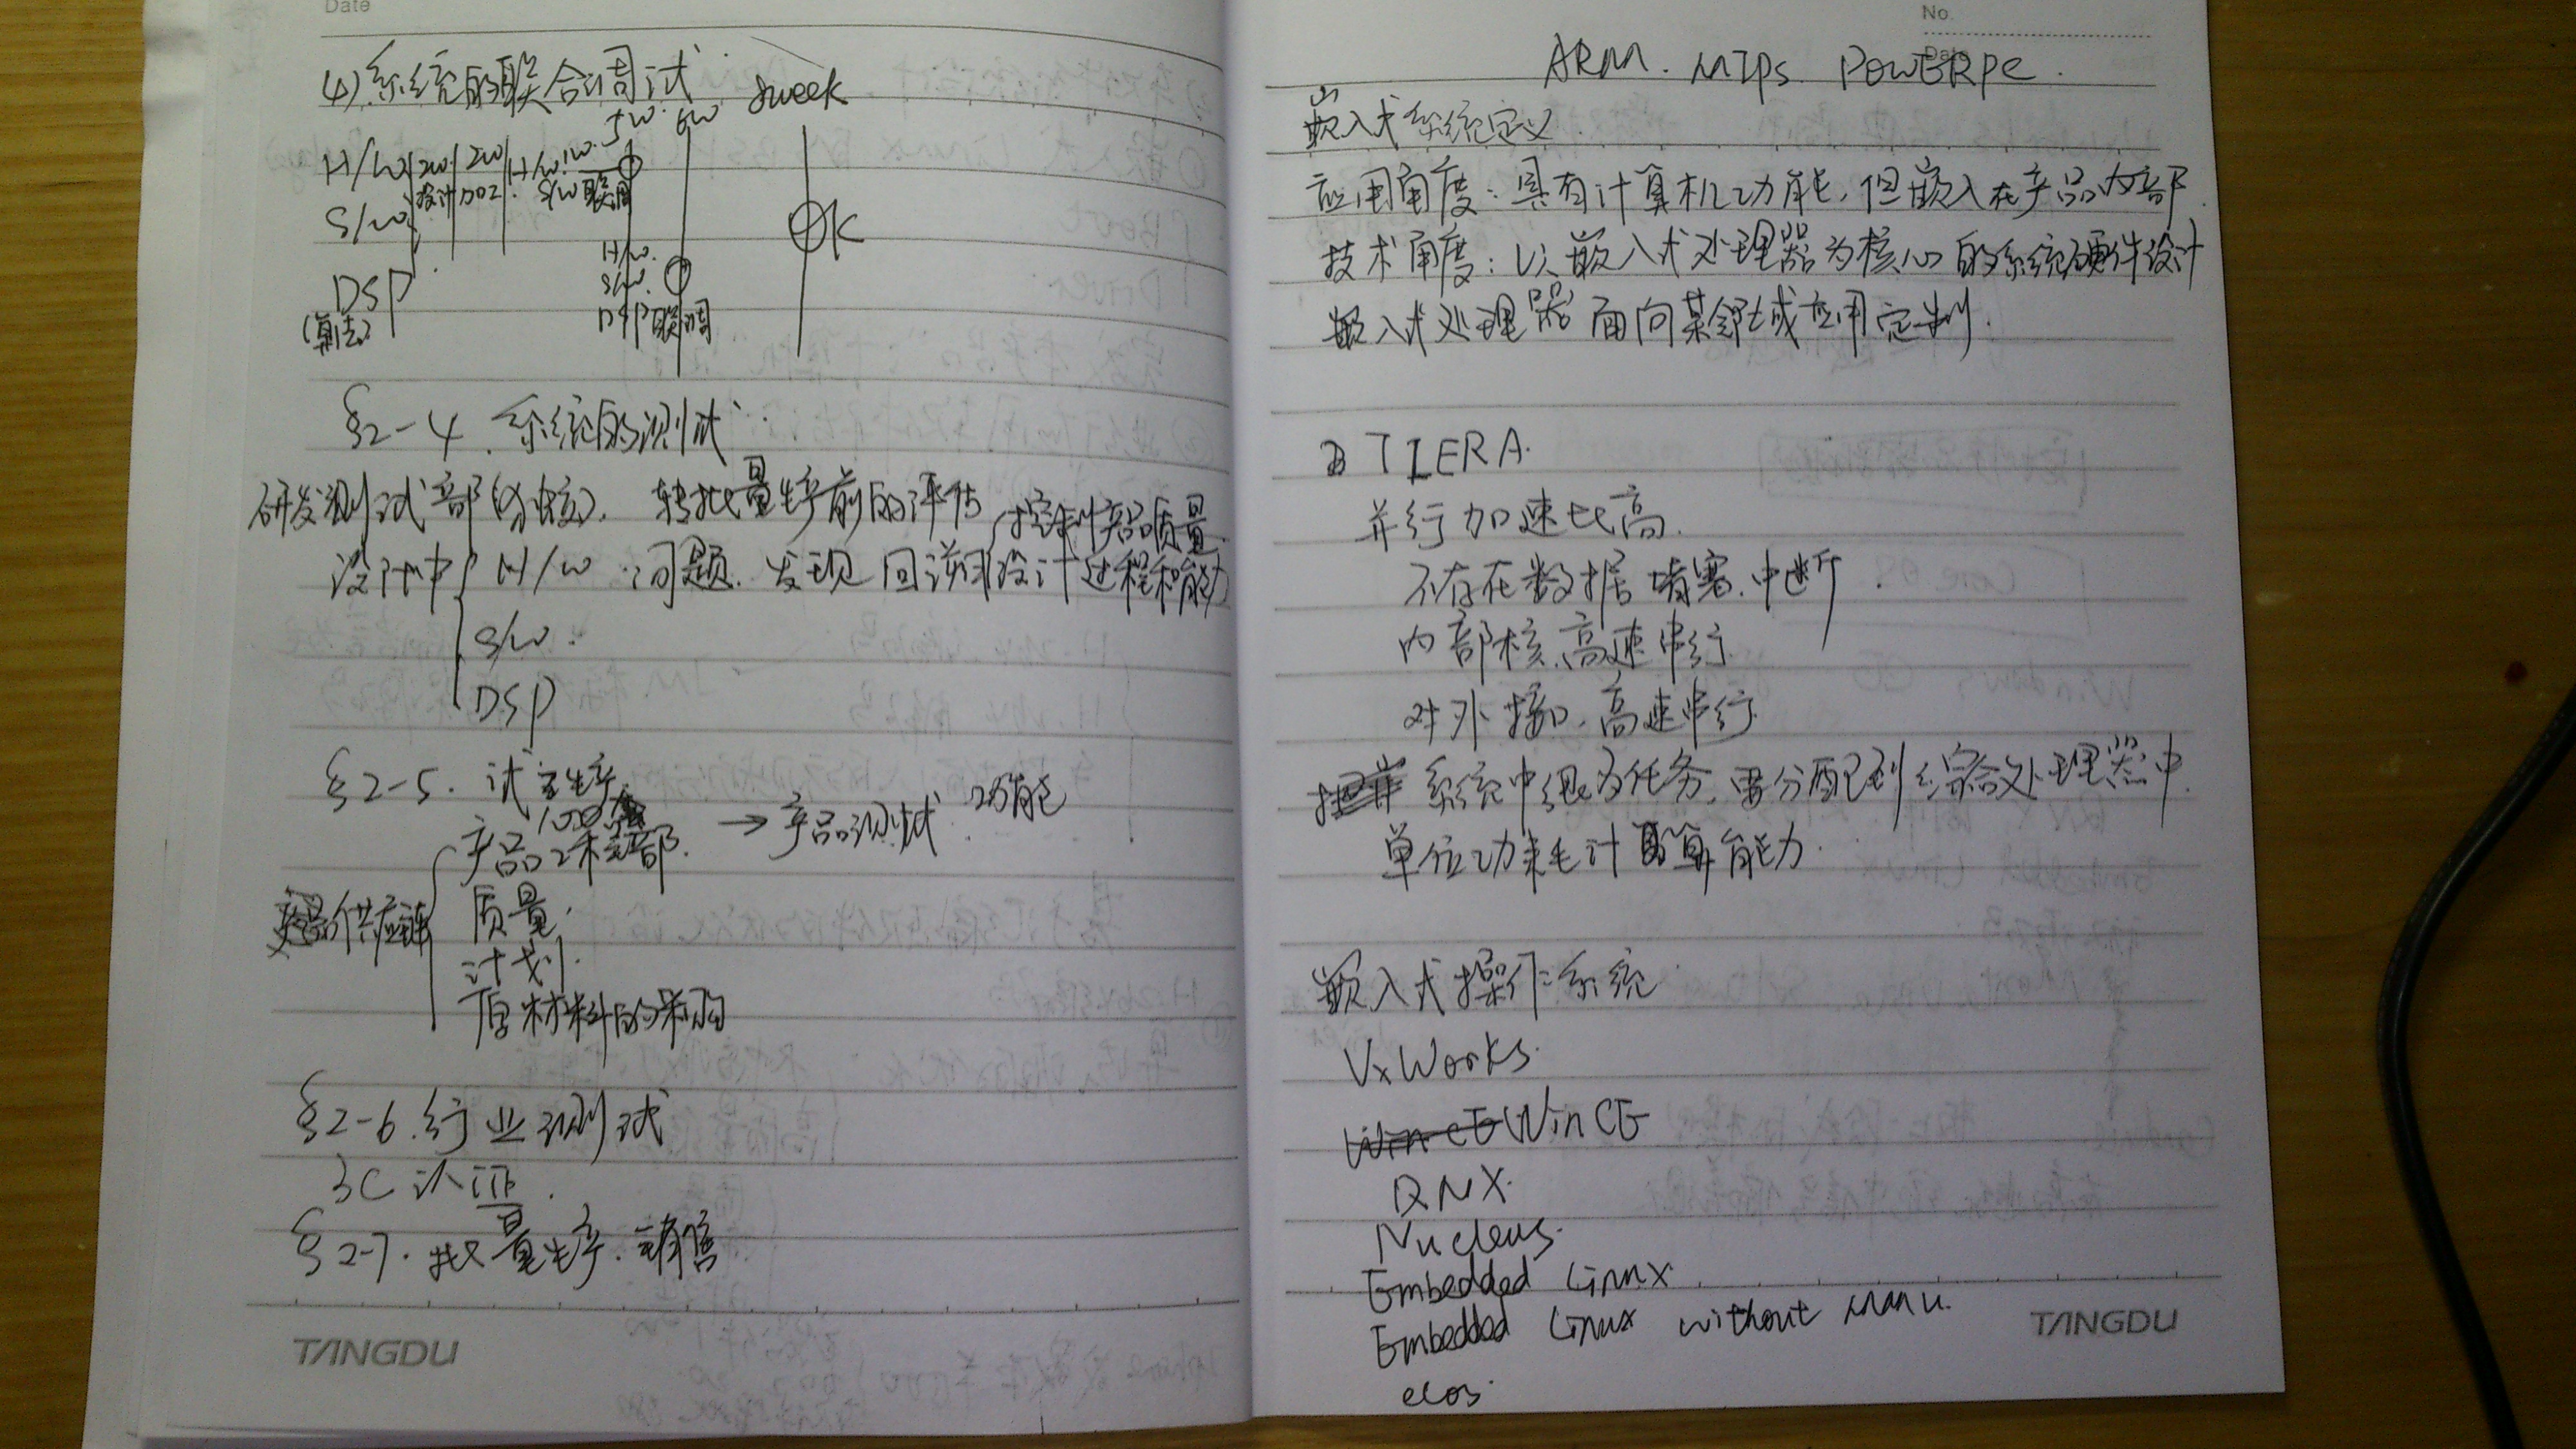 Date
4)系统的联合调试 8week
5w. 6w
H/W 2w 2w H/w. 1w.
设计 S/W 联调
S/W
OK
H/w.
DSP S/W.
(算法) DSP联调
§2-4. 系统的测试
研发测试部 转批量生产前的评估
控制产品质量
设计中 H/W 问题. 发现 回溯到设计过程和能力
S/W.
DSP
§2-5. 试生产
100台
产品工程部. → 产品测试. 功能
供应链 质量.
计划.
原材料的采购
§2-6. 行业测试
3C认证.
§2-7. 批量生产. 销售
TANGDU
No.
Date
ARM. MIPS. POWERPC.
嵌入式系统定义.
应用角度: 具有计算机功能, 但嵌入在产品内部.
技术角度: 以嵌入式处理器为核心的系统硬件设计
嵌入式处理器面向某领域应用定制.
TIERA.
并行加速比高.
不存在数据堵塞. 中断.
内部核. 高速串行
对外接口. 高速串行
系统中 任务, 要分配到综合处理器中.
单位功耗计算能力.
嵌入式操作系统
VxWorks.
WinCE WinCE
QNX.
Nucleus.
Embedded Linux.
Embedded Linux without
ecos.
TANGDU